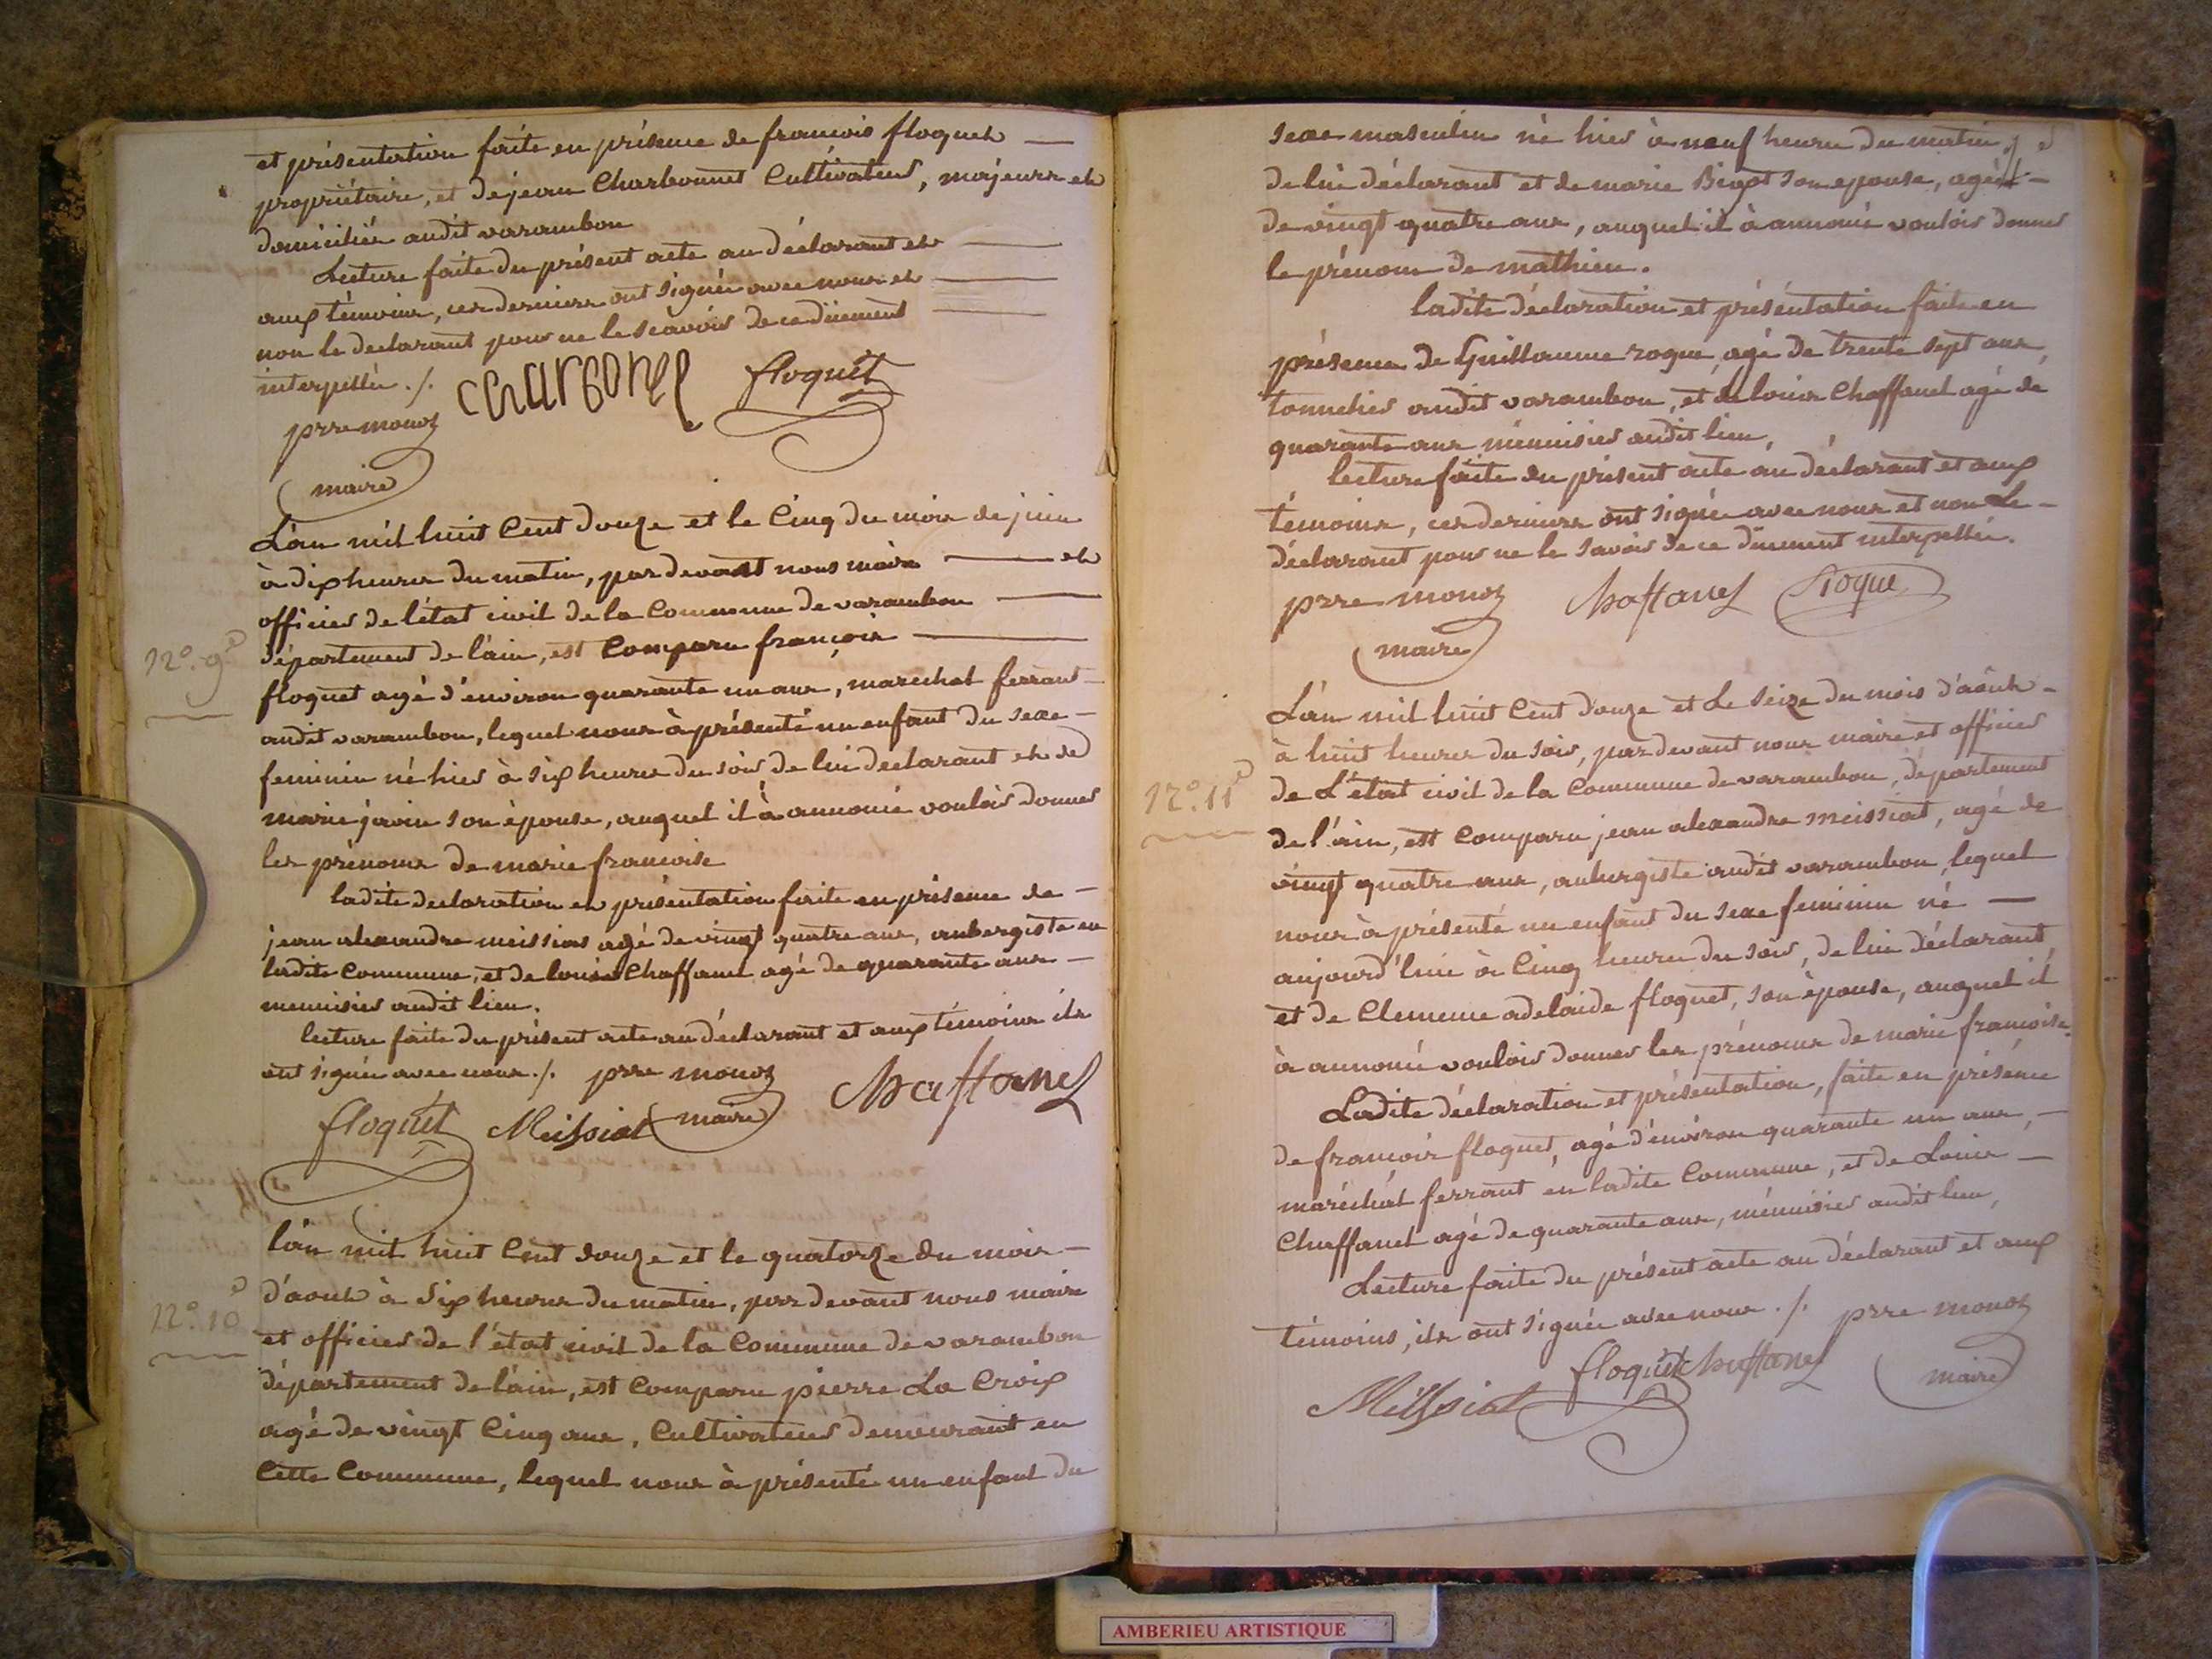 et présentation faite en présence de francois floquet
propriétaire, et de jean Charbonnet Cultivateur, majeurs et
domiciliés audit varambon
Lecture faite du présent acte au déclarant et
aux témoins, ces derniers ont signés avec nous et
non le declarant pour ne le scavoir de ce düement
interpellée ./.
charbonel floquet
prre monoz
maire
L'an mil huit Cent douze et le Cinq du mois de juin
à dix heures du matin, par devant nous maire et
officier de l'état civil de la Commune de varambon
N°. 9.e
département de l'ain, est Comparu françois
floquet agé d'environ quarante un ans, marechal ferrant
audit varambon, lequel nous à présenté un enfant du sexe
feminin né hier à six heures du soir de lui declarant et de
marie javin son épouse, auquel il à annoncé vouloir donner
les prénoms de marie francoise
ladite declaration et présentation faite en présence de
jean alexandre meissias agé de vingt quatre ans, aubergiste en
ladite Commune, et de louis Chaffanel agé de quarante ans
menuisier audit lieu.
lecture faite du présent acte au déclarant et aux témoins ils
ont signée avec nous ./. prre monoz
maire
Chaffanel
floquet Meissiat
l'an mil huit Cent douze et le quatorze du mois
d'aout à Six heures du matin, par devant nous maire
N°. 10.e
et officier de l'état civil de la Commune de varambon
département de l'ain, est Comparu pierre La Croix
agé de vingt Cinq ans, Cultivateur demeurant en
Cette Commune, lequel nous à présenté un enfant du
sexe masculin né hier à neuf heure du matin
de lui déclarant et de marie son epouse, agée
de vingt quatre ans, auquel il à annoncé vouloir donner
le prénom de mathieu.
ladite déclaration et présentation faite en
présence de Guillaume roque, agé de trente sept ans,
tonnelier audit varambon, et de louis Chaffanel agé de
quarante ans ménuisier audit lieu,
lecture faite du présent acte au déclarant et aux
témoins, ces derniers ont signée avec nous et non Le
déclarant pour ne le savoir de ce duement interpellée.
prre monoz Chaffanel Roque
maire
L'an mil huit Cent douze et Le Seize du mois d'aôut
à huit heures du soir, par devant nous maire et officier
de L'état civil de la Commune de varambon, département
N°. 11.e
de l'ain, est Comparu jean alexandre meissiat, agé de
vingt quatre ans, aubergiste audit varambon, lequel
nous à présenté un enfant du sexe feminin né
aujourd'hui à Cinq heures du soir, de lui déclarant,
et de Clemence adelaide floquet, son épouse, auquel il
à annoncé vouloir donner les prénoms de marie françoise.
Ladite déclaration et présentation, faite en présence
de francois floquet, agé d'environ quarante un ans,
maréchal ferrant en ladite Commune, et de Louis
Chaffanel agé de quarante ans, ménuisier audit lieu,
Lecture faite du présent acte au déclarant et aux
témoins, ils ont signée avec nous ./. prre monoz
maire
Meissiat floquet Chaffanel
AMBERIEU ARTISTIQUE